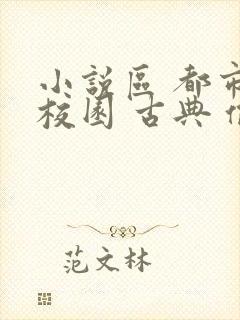 小說區 都市
校園 古典
范文林